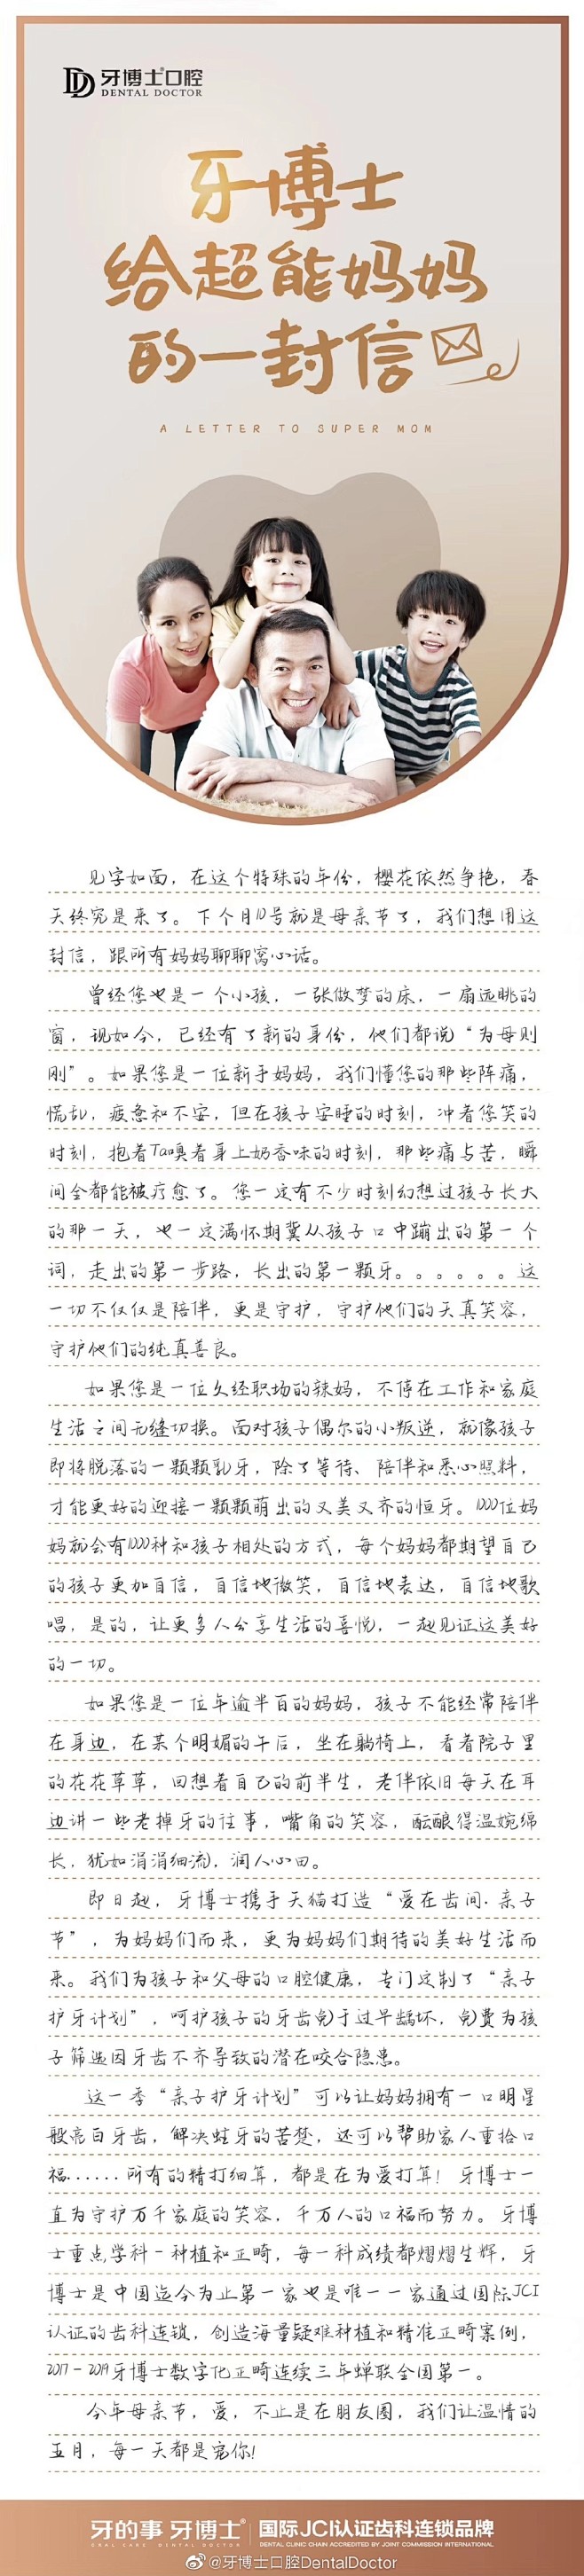 牙博士®口腔
DENTAL DOCTOR
牙博士
给超能妈妈
的一封信
A LETTER TO SUPER MOM
见字如面，在这个特殊的年份，樱花依然争艳，春
天终究是来了。下个月10号就是母亲节了，我们想用这
封信，跟所有妈妈聊聊窝心话。
曾经您也是一个小孩，一张做梦的床，一扇远眺的
窗，现如今，已经有了新的身份，他们都说“为母则
刚”。如果您是一位新手妈妈，我们懂您的那些阵痛，
慌乱，疲惫和不安，但在孩子安睡的时刻，冲着您笑的
时刻，抱着Ta嗅着身上奶香味的时刻，那些痛与苦，瞬
间全都能被疗愈了。您一定有不少时刻幻想过孩子长大
的那一天，也一定满怀期冀从孩子口中蹦出的第一个
词，走出的第一步路，长出的第一颗牙。。。。。。这
一切不仅仅是陪伴，更是守护，守护他们的天真笑容，
守护他们的纯真善良。
如果您是一位久经职场的辣妈，不停在工作和家庭
生活之间无缝切换。面对孩子偶尔的小叛逆，就像孩子
即将脱落的一颗颗乳牙，除了等待、陪伴和悉心照料，
才能更好的迎接一颗颗萌出的又美又齐的恒牙。1000位妈
妈就会有1000种和孩子相处的方式，每个妈妈都期望自己
的孩子更加自信，自信地微笑，自信地表达，自信地歌
唱，是的，让更多人分享生活的喜悦，一起见证这美好
的一切。
如果您是一位年逾半百的妈妈，孩子不能经常陪伴
在身边，在某个明媚的午后，坐在躺椅上，看着院子里
的花花草草，回想着自己的前半生，老伴依旧每天在耳
边讲一些老掉牙的往事，嘴角的笑容，酝酿得温婉绵
长，犹如涓涓细流，润人心田。
即日起，牙博士携手天猫打造“爱在齿间·亲子
节”，为妈妈们而来，更为妈妈们期待的美好生活而
来。我们为孩子和父母的口腔健康，专门定制了“亲子
护牙计划”，呵护孩子的牙齿免于过早龋坏，免费为孩
子筛选因牙齿不齐导致的潜在咬合隐患。
这一季“亲子护牙计划”可以让妈妈拥有一口明星
般亮白牙齿，解决蛀牙的苦楚，还可以帮助家人重拾口
福......所有的精打细算，都是在为爱打算！牙博士一
直为守护万千家庭的笑容，千万人的口福而努力。牙博
士重点学科-种植和正畸，每一科成绩都熠熠生辉，牙
博士是中国迄今为止第一家也是唯一一家通过国际JCI
认证的齿科连锁，创造海量疑难种植和精准正畸案例，
2017-2019牙博士数字化正畸连续三年蝉联全国第一。
今年母亲节，爱，不止是在朋友圈，我们让温情的
五月，每一天都是宠你！
牙的事 牙博士® 国际JCI认证齿科连锁品牌
ORAL CARE DENTAL DOCTOR DENTAL CLINIC CHAIN ACCREDITED BY JOINT COMMISSION INTERNATIONAL
@牙博士口腔DentalDoctor